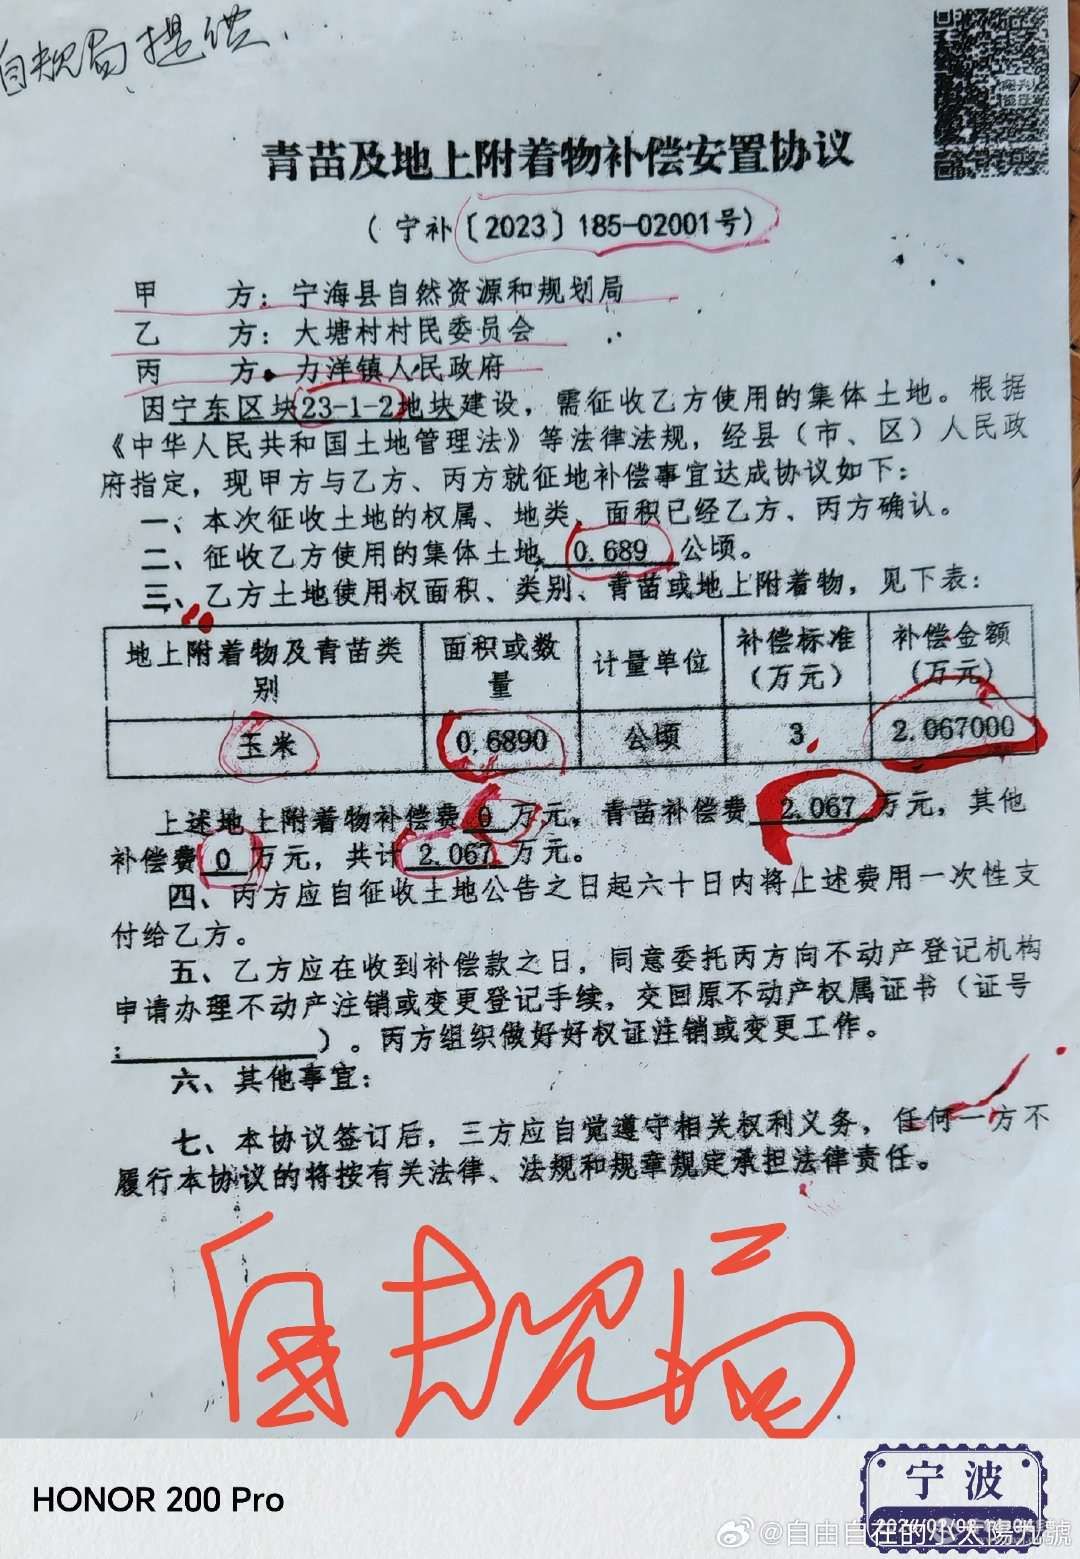 自规局提供.
青苗及地上附着物补偿安置协议
（宁补〔2023〕185-02001号）
甲　　方：宁海县自然资源和规划局
乙　　方：大塘村村民委员会
丙　　方：力洋镇人民政府
因宁东区块23-1-2地块建设，需征收乙方使用的集体土地。根据
《中华人民共和国土地管理法》等法律法规，经县（市、区）人民政
府指定，现甲方与乙方、丙方就征地补偿事宜达成协议如下：
一、本次征收土地的权属、地类、面积已经乙方、丙方确认。
二、征收乙方使用的集体土地 0.689 公顷。
三、乙方土地使用权面积、类别、青苗或地上附着物，见下表：
地上附着物及青苗类别 面积或数量 计量单位 补偿标准（万元） 补偿金额（万元）
玉米 0.6890 公顷 3 2.067000
上述地上附着物补偿费 0 万元，青苗补偿费 2.067 万元，其他
补偿费 0 万元，共计 2.067 万元。
四、丙方应自征收土地公告之日起六十日内将上述费用一次性支
付给乙方。
五、乙方应在收到补偿款之日，同意委托丙方向不动产登记机构
申请办理不动产注销或变更登记手续，交回原不动产权属证书（证号
：　　　　　　）。丙方组织做好好权证注销或变更工作。
六、其他事宜：
七、本协议签订后，三方应自觉遵守相关权利义务，任何一方不
履行本协议的将按有关法律、法规和规章规定承担法律责任。
自规局
HONOR 200 Pro
宁波
@自由自在的小太陽九號